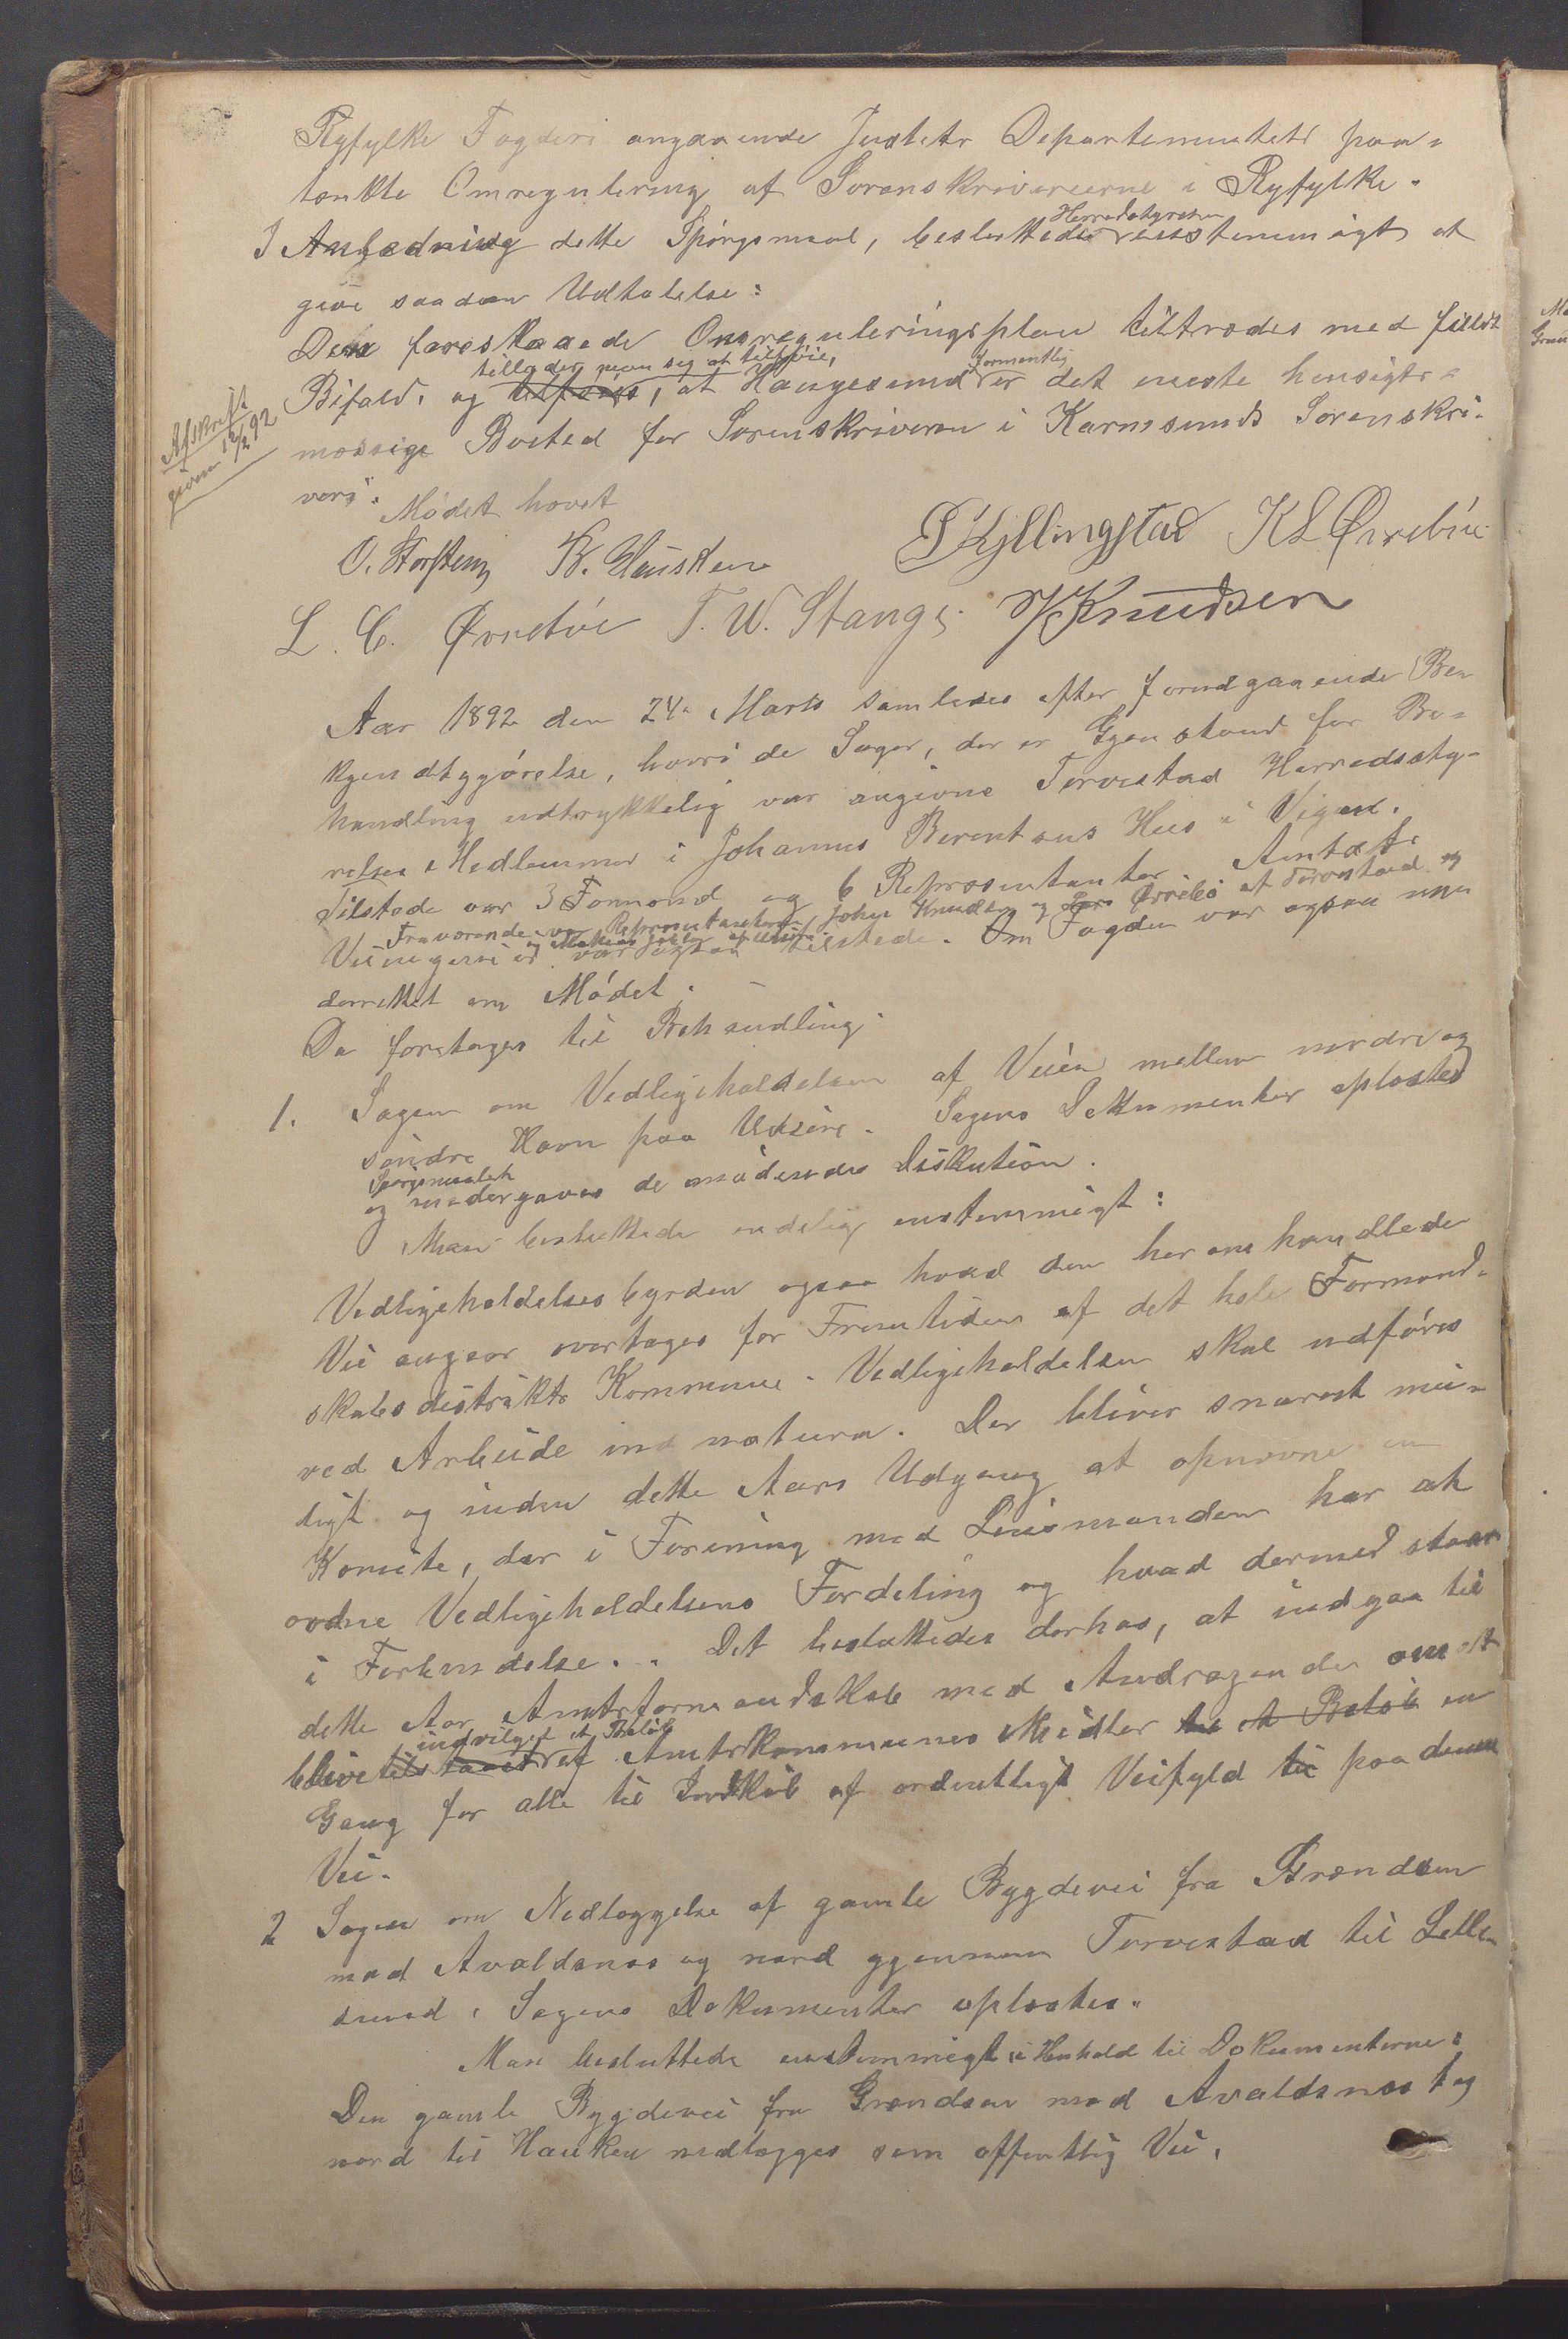 Ryfylke Fogderi angaaende Justets Departementets paa-
tænkte Omregulering af Sorenskriverierne i Ryfylke.
I Anledning dette Spørgsmaal, besluttede Herredsstyrelsen eenstemmigt at
give saadan Udtalelse:
Den foreslaaede Omreguleringsplan tiltrædes med fuldt
Bifald, og tillader man sig at tilføie, at Haugesund formentlig er det eneste hensigts-
mæssige Bosted for Sorenskriveren i Karmsunds Sorenskri-
veri.
Afskrift
given 12/2 92
Mødet hævet
O. Storsteen B. Hausken S Kyllingstad K L Ørrebøe
L. C. Ørrebøe T. W. Stange K Knudsen
Aar 1892 den 24de Marts samledes efter forudgaaende Be-
kjendtgjørelse, hvori de Sager, der er Gjenstand for Be-
handling udtrykkelig var angivne Torvestad Herredssty-
relses Medlemmer i Johannes Berentsens Hus i Vigen.
Tilstede var 3 Formænd og 6 Repræsentanter. Amtets
Fraværende var Repræsentanterne, John Knudsen og Lars Ørrebø af Torvestad og
og Mathias Jakobs. af Utsire.
Veiingeniør var ogsaa tilstede. Om Fogden var ogsaa un-
derrettet om Mødet.
Da foretages til Behandling:
1. Sagen om Vedligeholdelsen af Veien mellem nordre og
søndre Havn paa Udsire. Sagens Dokumenter oplæstes
og Spørgsmaalet undergaves de mødendes Diskution.
Man besluttede endelig enstemmigt:
Vedligeholdelsesbyrden ogsaa hvad den her omhandlede
Vei angaar overtages for Fremtiden af det hele Formand-
skabsdistrikts Kommune. Vedligeholdelsen skal udføres
ved Arbeide in natura. Der bliver snarest mu-
ligt og inden dette Aars Udgang at opnævne en
Komite, der i Forening med Lensmanden har at
ordne Vedligeholdelsens Fordeling og hvad dermed staar
i Forbindelse. Det besluttedes derhos, at indgaa til
dette Aars Amtsformandskab med Andragende om at
blive tilstaaet indvilget et Beløb af Amtskommunens Midler til et Beløb en
Gang for alle til Indkøb af ordentligt Veifyld til paa denne
Vei.
2 Sagen om Nedlæggelse af gamle Bygdevei fra Grændsen
mod Avaldsnes og nord gjennem Torvestad til Lille-
sund. Sagens Dokumenter oplæstes.
Man besluttede enstemmigt i Henhold til Dokumenterne:
Den gamle Bygdevei fra Grændsen mod Avaldsnes og
nord til Hauken nedlægges som offentlig Vei.